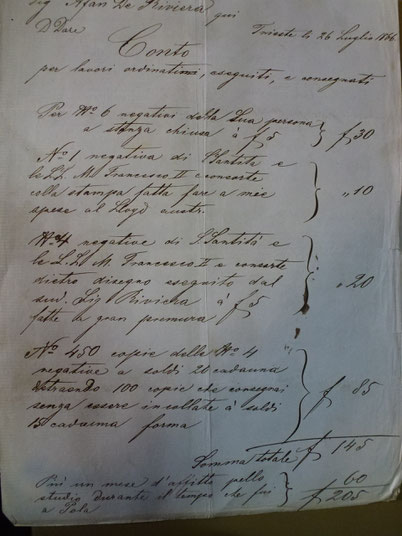 Sig Afan De Riviera qui
D Dare Trieste li 26 Luglio 186
Conto
per lavori ordinatimi, eseguiti, e consegnati
Per No 6 negativi della Sua persona
a stanza chiusa à f 5 f 30
No 1 negativa di S Santità e
le L.L. M. Francesco II e consorte
colla stampa fatta fare a mie
spese al Lloyd austr. " 10
No 4 negative di S Santità e
le L.L. M. Francesco II e consorte
dietro disegno eseguito dal
sud. Sig Riviera à f 5 " 20
fatte di gran premura
No 450 copie delle No 4
negative a soldi 20 cadauna
detraendo 100 copie che consegnai
senza essere incollate à soldi f 85
15 cadauna forma
Somma totale f 145
Più un mese d'affitto pello 60
studio durante il tempo che fui f 205
a Pola